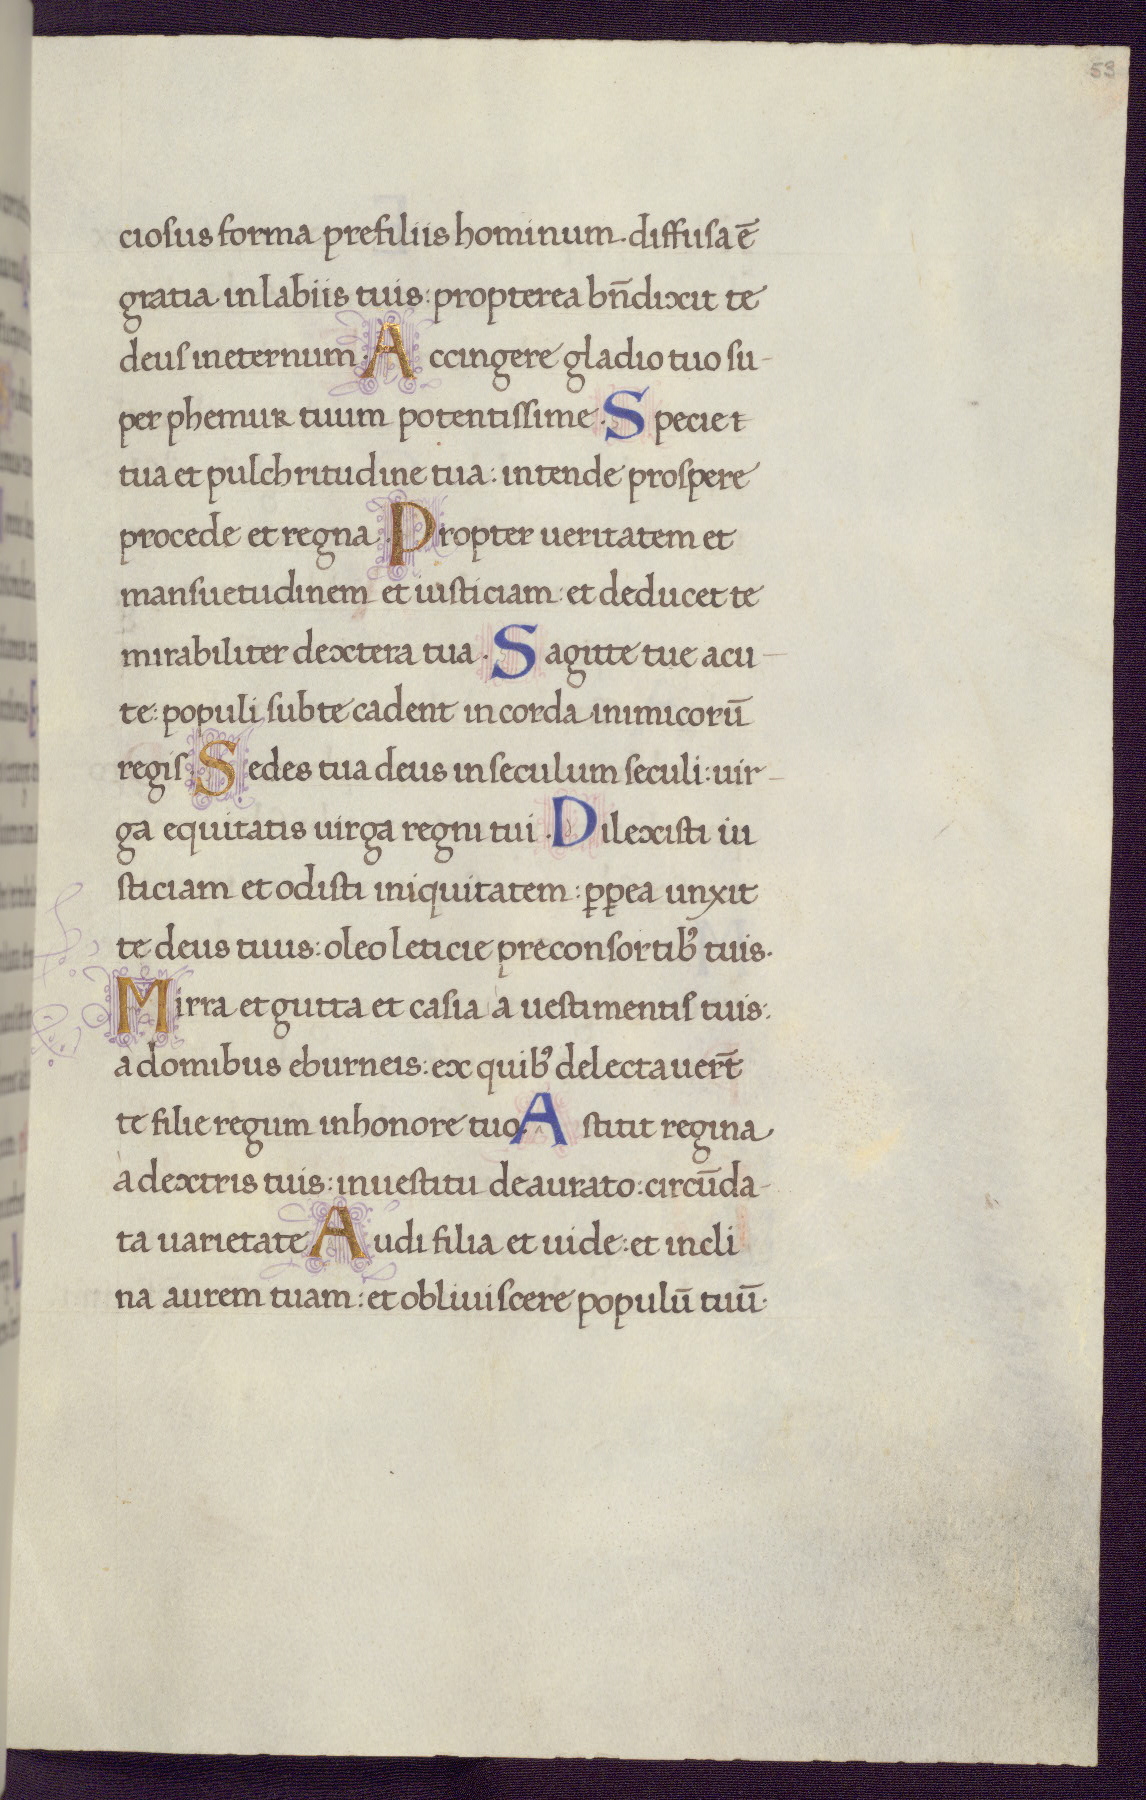 53
ciosus forma prefiliis hominum. diffusa ē
gratia in labiis tuis: propterea bn̄dixit te
deus in eternum: Accingere gladio tuo su-
per phemur tuum potentissime. Specie t
tua et pulchritudine tua: intende prospere
procede et regna. Propter ueritatem et
mansuetudinem et iusticiam: et deducet te
mirabiliter dextera tua. Sagitte tue acu-
te: populi subte cadent in corda inimicorū
regis. Sedes tua deus in seculum seculi: uir-
ga equitatis uirga regni tui. Dilexisti iu
sticiam et odisti iniquitatem: ꝓꝑea unxit
te deus tuus: oleo leticie preconsortibꝰ tuis.
Mirra et gutta et casia a uestimentis tuis:
a domibus eburneis: ex quibꝰ delectauerr̄t
te filie regum in honore tuo. Astitit regina
a dextris tuis: in uestitu deaurato: circūda-
ta uarietate Audi filia et uide: et incli
na aurem tuam: et obliuiscere populū tuū.